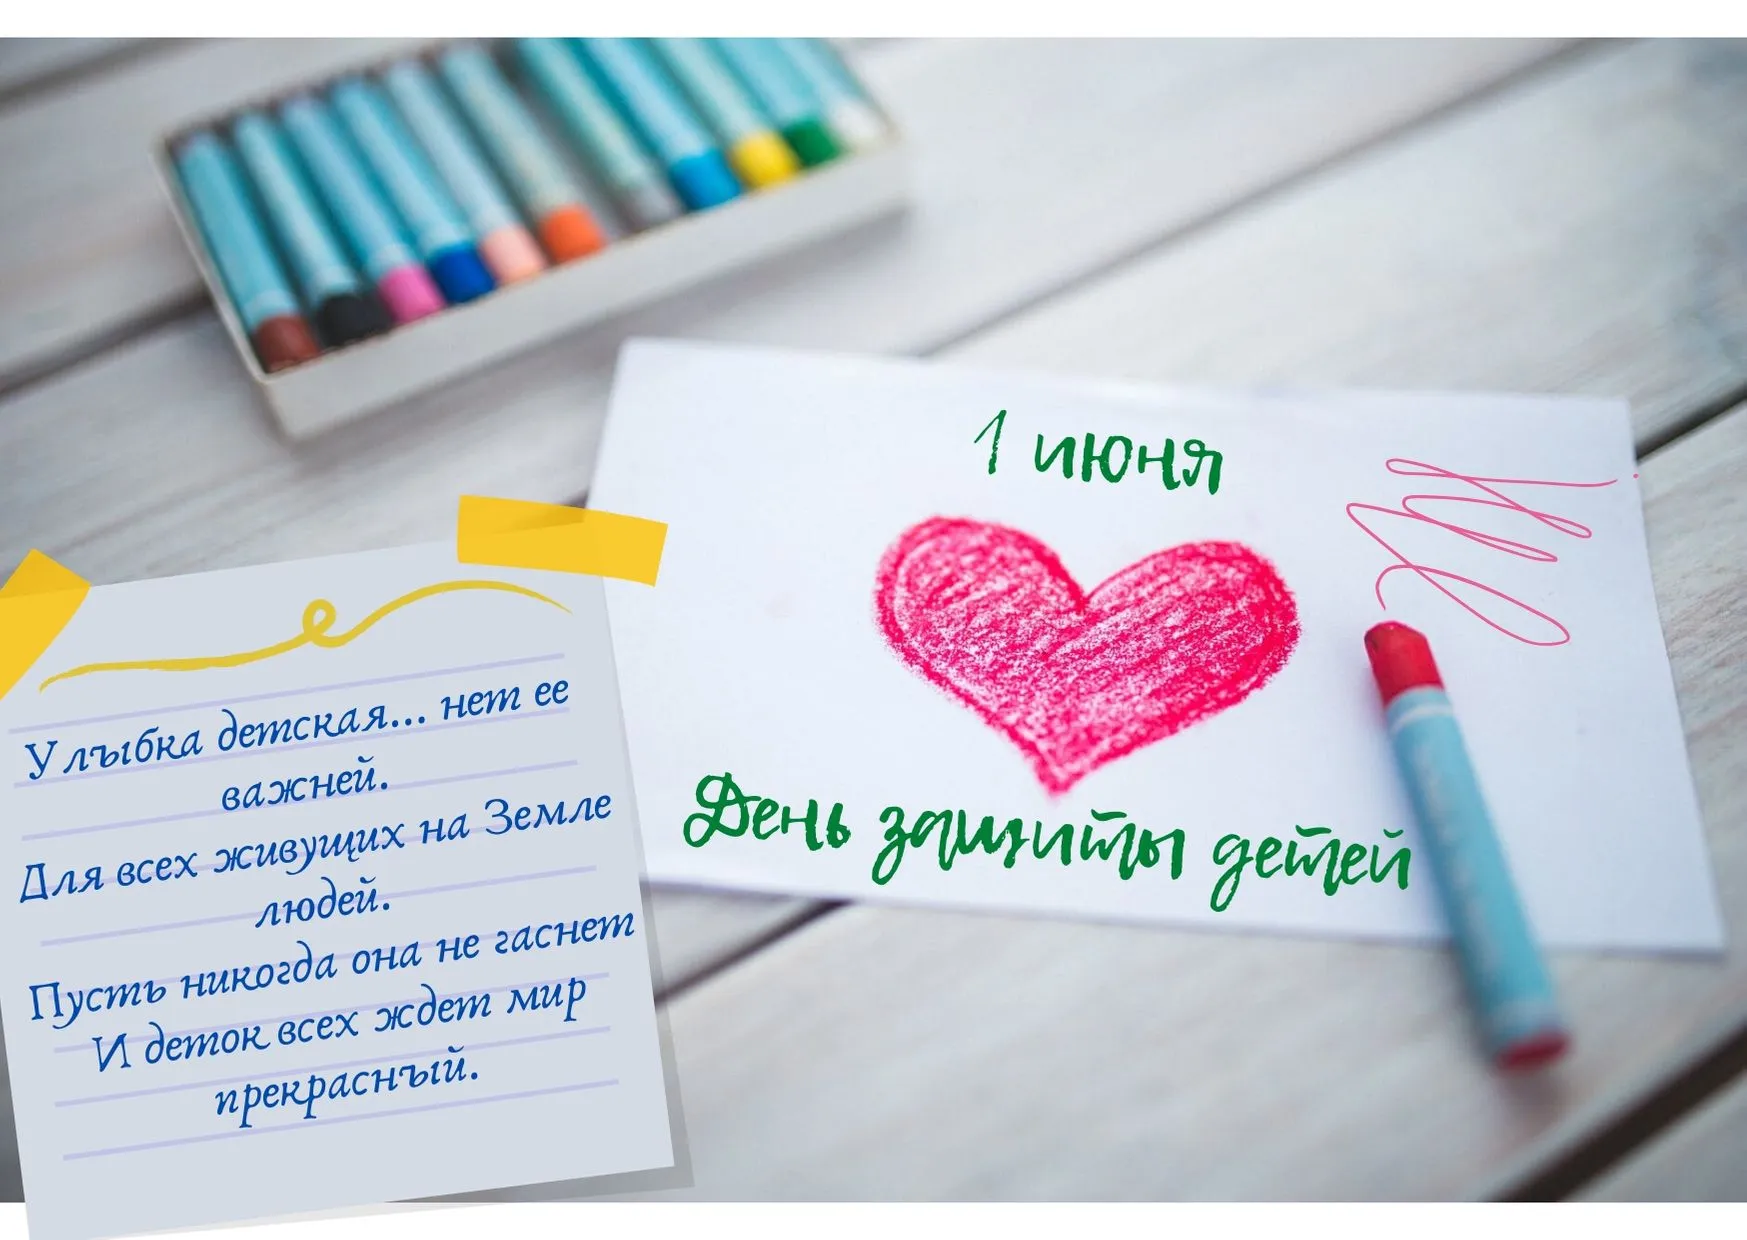 1 июня
День защиты детей
Улыбка детская... нет ее
важней.
Для всех живущих на Земле
людей.
Пусть никогда она не гаснет
И деток всех ждет мир
прекрасный.